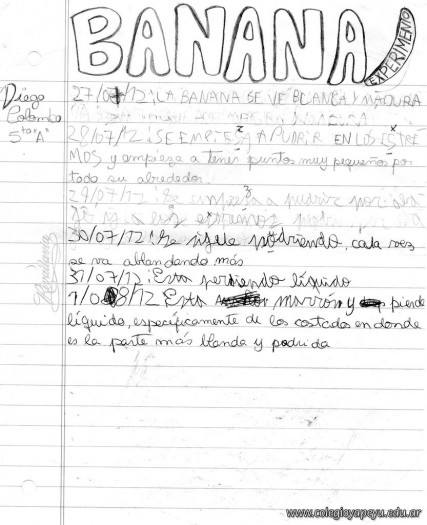 BANANA
EXPERIMENTO
Diego
Colombo
5to "A"
27/07/12: LA BANANA SE VE BLANCA Y MADURA
28/07/12: SE EMPIESA A PUDRIR EN LOS EXTRE
MOS, y empieza a tener puntos muy pequeños por
todo su alrededor.
29/07/12: Se empieza a pudrir por
extremos
30/07/12: Se sigue pudriendo, cada vez
se va ablandando más
31/07/12: Esta perdiendo líquido
1/08/12: Esta marrón y pierde
líquido, específicamente de los costados en donde
es la parte más blanda y podrida
www.colegioyapeyu.edu.ar